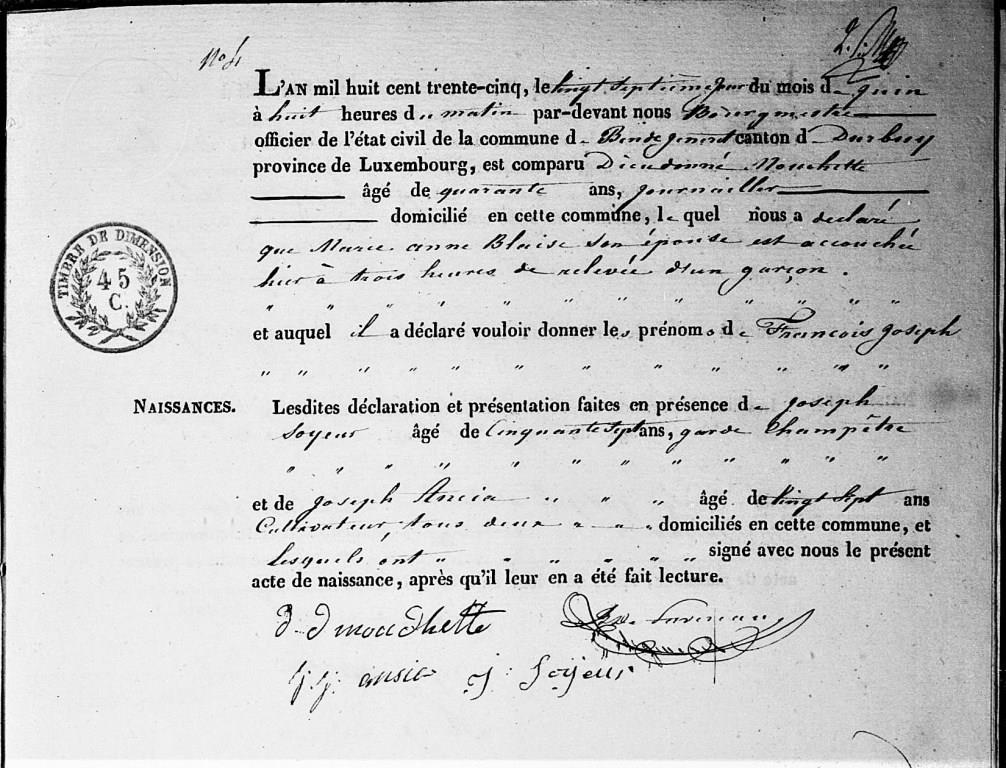 N° 51
L'AN mil huit cent trente-cinq, le vingt septieme jour du mois de juin
à huit heures du matin par-devant nous Bourgmestre
officier de l'état civil de la commune de Bende jenneret canton d Durbuy
province de Luxembourg, est comparu Dieudonné Mouchette
âgé de quarante ans, journailler
domicilié en cette commune, le quel nous a declaré
que Marie anne Blaise son épouse est accouchée
hier à trois heures de relevée d'un garçon.
et auquel il a déclaré vouloir donner les prénoms de François joseph
NAISSANCES. Lesdites déclaration et présentation faites en présence de joseph
Soyeur âgé de Cinquante Sept ans, garde Champêtre
et de joseph Ancia âgé de vingt Sept ans
Cultivateur, tous deux domiciliés en cette commune, et
Lesquels ont signé avec nous le présent
acte de naissance, après qu'il leur en a été fait lecture.
TIMBRE DE DIMENSION
45
C.
D D mouchette
j j ansia J: Soyeur